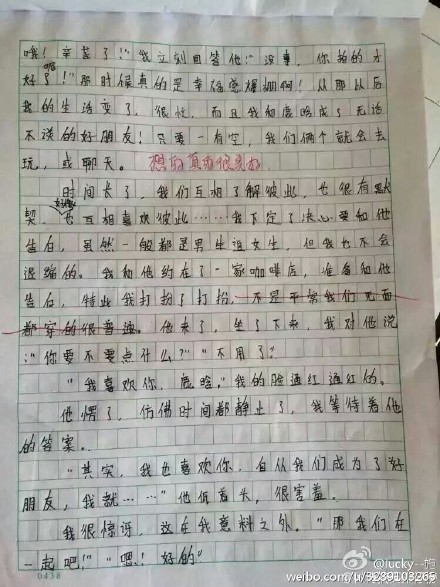 哦！辛苦了！"我立刻回答他"没事，你拍的才
好了！"那时候真的是幸福感爆棚啊！从那以后
我的生活变了，很忙，而且我和鹿晗成了无话
不说的好朋友！只要一有空，我们俩个就会去
玩，或聊天。想的真的很美好
时间长了，我们互相了解彼此，也很有默
契，也好像互相喜欢彼此……我下定了决心要和他
告白，虽然一般都是男生追女生，但我也不会
退缩的。我和他约在了一家咖啡店，准备和他
告白，特此我打扮了打扮，不是平常我们见面
都穿的很普通。他来了，坐了下来，我对他说
："你要不要点什么？""不用了"
"我喜欢你，鹿晗，"我的脸通红通红的。
他愣了，仿佛时间都静止了，我等待着他
的答案。
"其实，我也喜欢你，自从我们成为了好
朋友，我就……"他低着头，很害羞。
我很惊讶，这在我意料之外。"那我们在
一起吧！""嗯！好的"
0438
@lucky--梅
weibo.com/u/3239103265